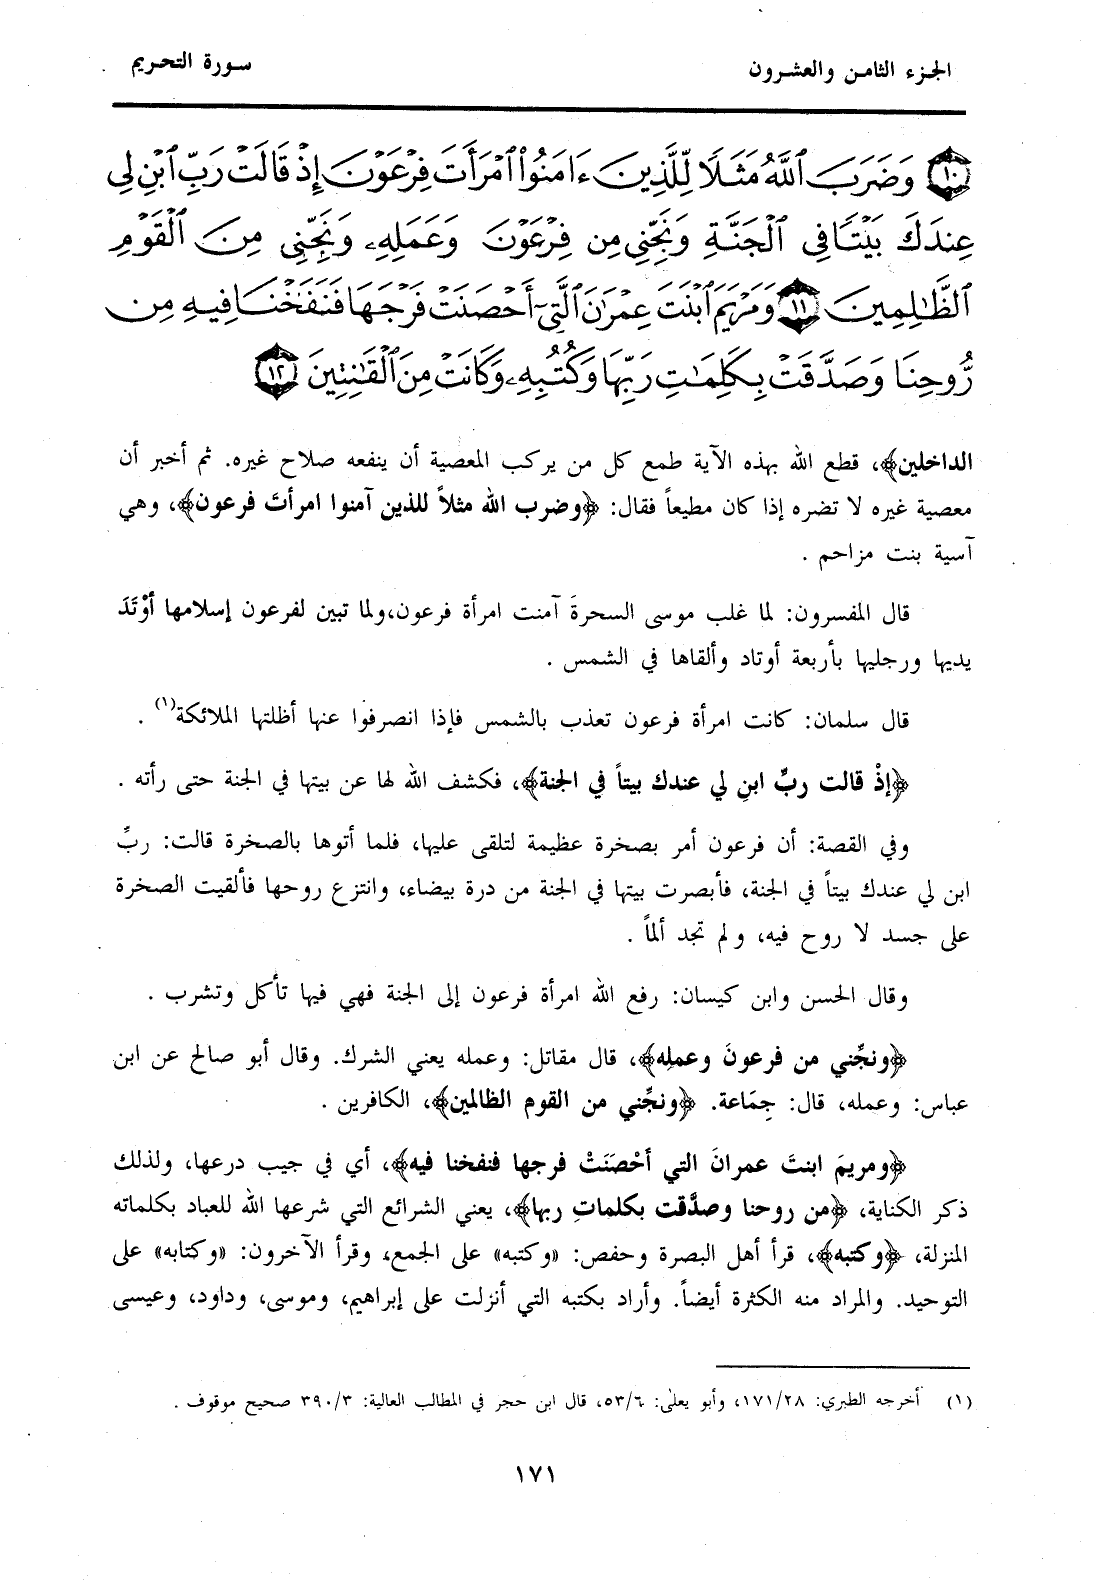 الجزء الثامن والعشرون
سورة التحريم
١٠ وَضَرَبَ ٱللَّهُ مَثَلًا لِّلَّذِينَ ءَامَنُوا۟ ٱمْرَأَتَ فِرْعَوْنَ إِذْ قَالَتْ رَبِّ ٱبْنِ لِى
عِندَكَ بَيْتًا فِى ٱلْجَنَّةِ وَنَجِّنِى مِن فِرْعَوْنَ وَعَمَلِهِۦ وَنَجِّنِى مِنَ ٱلْقَوْمِ
ٱلظَّـٰلِمِينَ ١١ وَمَرْيَمَ ٱبْنَتَ عِمْرَٰنَ ٱلَّتِىٓ أَحْصَنَتْ فَرْجَهَا فَنَفَخْنَا فِيهِ مِن
رُّوحِنَا وَصَدَّقَتْ بِكَلِمَـٰتِ رَبِّهَا وَكُتُبِهِۦ وَكَانَتْ مِنَ ٱلْقَـٰنِتِينَ ١٢
الداخلين﴾، قطع الله بهذه الآية طمع كل من يركب المعصية أن ينفعه صلاح غيره. ثم أخبر أن
معصية غيره لا تضره إذا كان مطيعاً فقال: ﴿وضرب الله مثلاً للذين آمنوا امرأتَ فرعون﴾، وهي
آسية بنت مزاحم .
قال المفسرون: لما غلب موسى السحرةَ آمنت امرأة فرعون،ولما تبين لفرعون إسلامها أوْتَدَ
يديها ورجليها بأربعة أوتاد وألقاها في الشمس .
قال سلمان: كانت امرأة فرعون تعذب بالشمس فإذا انصرفوا عنها أظلتها الملائكة(١) .
﴿إذْ قالت ربِّ ابنِ لي عندك بيتاً في الجنة﴾، فكشف الله لها عن بيتها في الجنة حتى رأته .
وفي القصة: أن فرعون أمر بصخرة عظيمة لتلقى عليها، فلما أتوها بالصخرة قالت: ربِّ
ابن لي عندك بيتاً في الجنة، فأبصرت بيتها في الجنة من درة بيضاء، وانتزع روحها فألقيت الصخرة
على جسد لا روح فيه، ولم تجد ألماً .
وقال الحسن وابن كيسان: رفع الله امرأة فرعون إلى الجنة فهي فيها تأكل وتشرب .
﴿ونجِّني من فرعونَ وعملِه﴾، قال مقاتل: وعمله يعني الشرك. وقال أبو صالح عن ابن
عباس: وعمله، قال: جِمَاعة. ﴿ونجِّني من القوم الظالمين﴾، الكافرين .
﴿ومريمَ ابنتَ عمرانَ التي أحْصَنَتْ فرجها فنفخنا فيه﴾، أي في جيب درعها، ولذلك
ذكر الكناية، ﴿من روحنا وصدَّقت بكلماتِ ربها﴾، يعني الشرائع التي شرعها الله للعباد بكلماته
المنزلة، ﴿وكتبه﴾، قرأ أهل البصرة وحفص: «وكتبه» على الجمع، وقرأ الآخرون: «وكتابه» على
التوحيد. والمراد منه الكثرة أيضاً. وأراد بكتبه التي أنزلت على إبراهيم، وموسى، وداود، وعيسى
(١) أخرجه الطبري: ١٧١/٢٨، وأبو يعلى: ٥٣/٦، قال ابن حجر في المطالب العالية: ٣٩٠/٣ صحيح موقوف .
١٧١